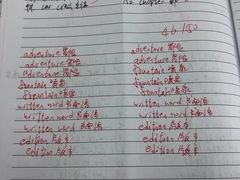 car crash
chapter
46/50
adventure 冒险 adventure 冒险
adventure 冒险 adventure 冒险
adventure 冒险 adventure 冒险
fountain 喷泉 fountain 喷泉
fountain 喷泉 fountain 喷泉
written word 书面语 written word 书面语
written word 书面语 written word 书面语
written word 书面语 written word 书面语
edition 版本 edition 版本
edition 版本 edition 版本